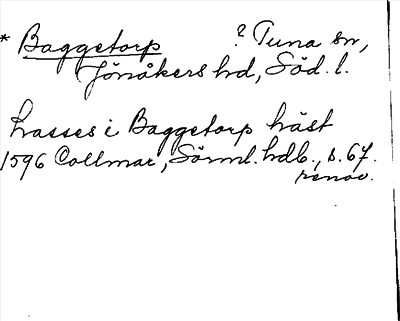 * Baggetorp ? Tuna sn,
Jönåkers hd, Söd. l.
Lasses i Baggetorp häst
1596 Collmar, Sörml. hdl., s. 67.
renov.